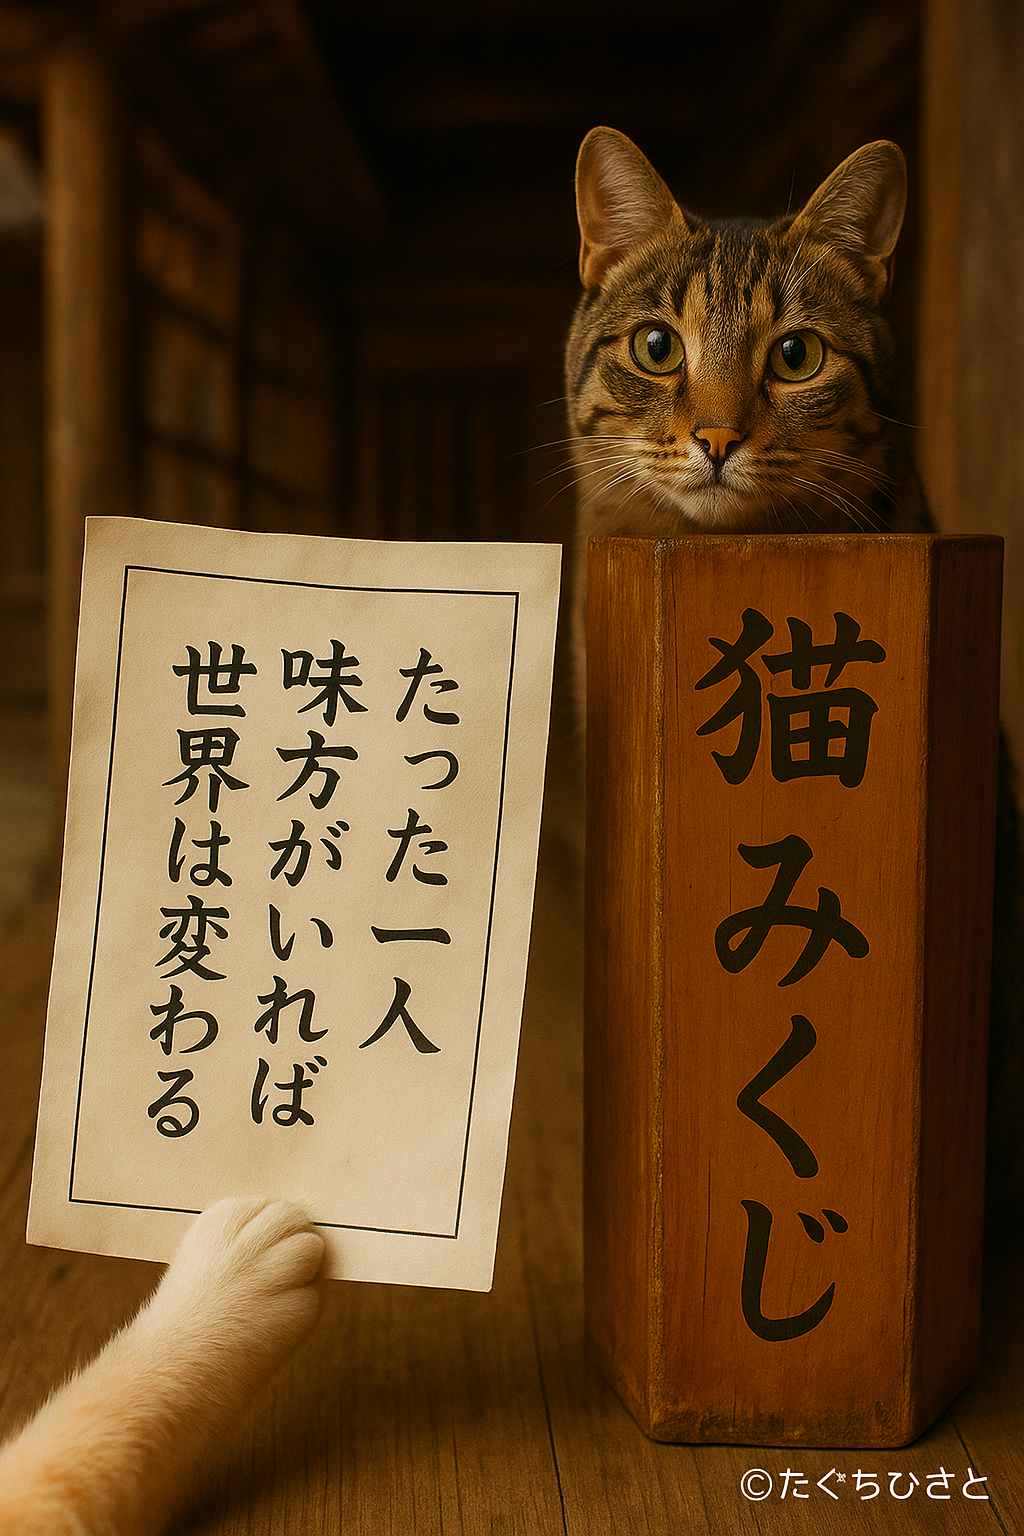 たった一人
味方がいれば
世界は変わる
猫みくじ
©たぐちひさと